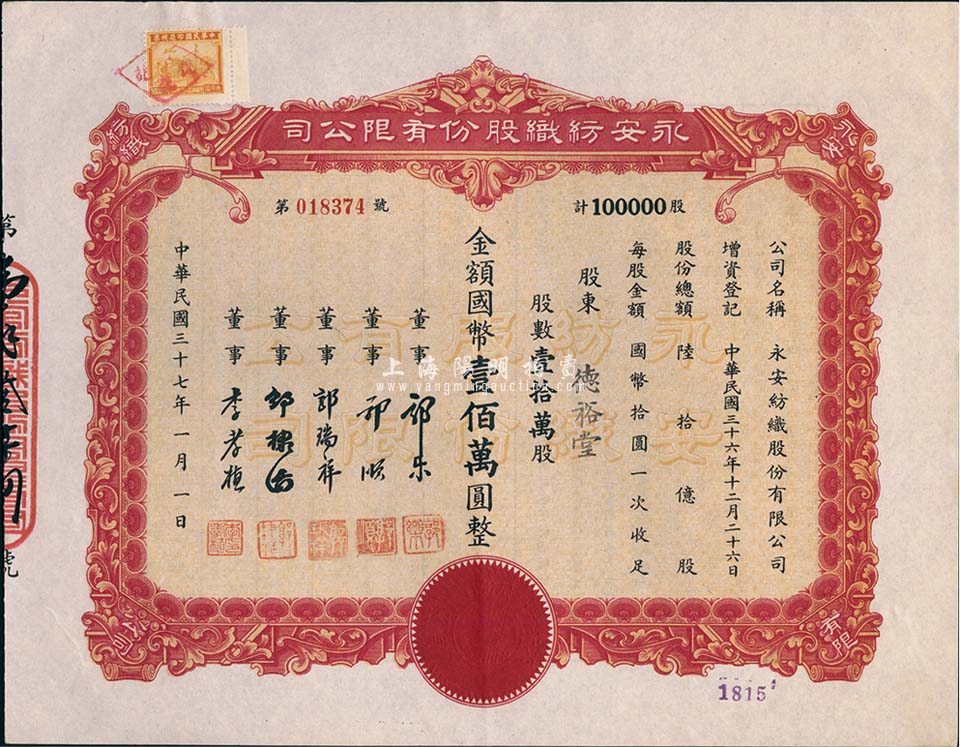 中華民國印花稅票
永安紡織股份有限公司
永安
紡織
計 100000 股
第 018374 號
公司名稱 永安紡織股份有限公司
增資登記 中華民國三十六年十二月二十六日
股份總額 陸拾億股
每股金額 國幣拾圓一次收足
股東 德裕堂
股數壹拾萬股
金額國幣壹佰萬圓整
董事 郭樂
董事 郭順
董事 郭瑞祥
董事 郭棣活
董事 李孝植
中華民國三十七年一月一日
永紡股有公
安織份限司
上海陽明拍賣
www.yangmingauction.com
有限
公司
第
號
1815